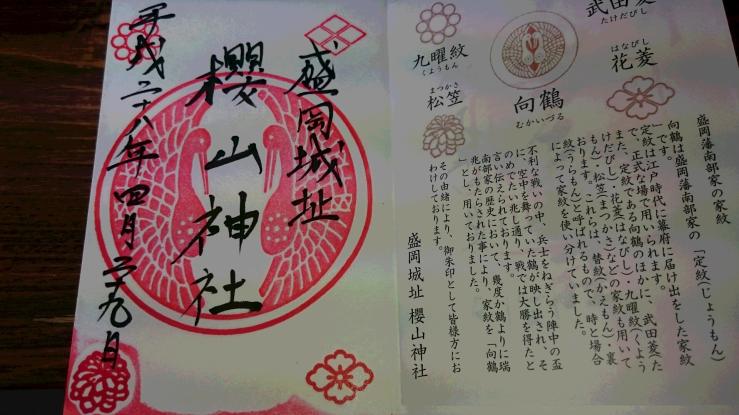 盛岡城址
櫻山神社
平成二十八年四月二十九日
武田菱
たけだびし
はなびし
花菱
向鶴
むかいづる
九曜紋
くようもん
まつかさ
松笠
盛岡藩南部家の家紋
向鶴は盛岡藩南部家の「定紋(じょうもん)
」です。
定紋は江戸時代に幕府に届け出をした家紋
で、正式な場で用いられます。
また、定紋である向鶴のほかに、武田菱(た
けだびし)・花菱(はなびし)・九曜紋(くよう
もん)、松笠(まつかさ)などの家紋も用いて
おります。これらは、替紋(かえもん)、裏
紋(うらもん)と呼ばれるもので、時と場合
によって家紋を使い分けていました。
不利な戦いの中、兵士をねぎらう陣中の盃
に、空中を舞っていた鶴が映し出され、そ
のめでたい兆し通り、戦では大勝を得たと
言い伝えられております。
南部家の歴史において、幾度か鶴より瑞
兆がもたらされた事により、家紋を「向鶴
」とし、用いておりました。
その由緒により、御朱印として皆様方にお
わけしております。
盛岡城址 櫻山神社